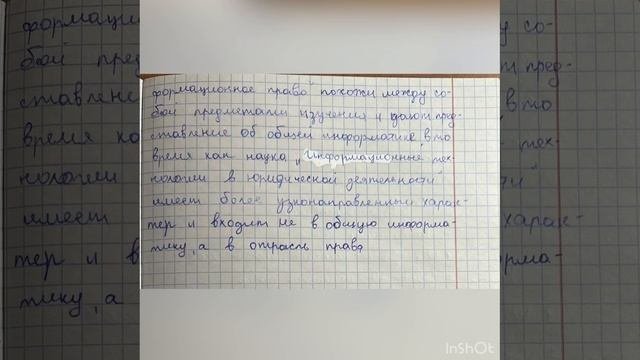 формационное право" похожи между со-
бой предметами изучения и дают пред-
ставление об общей информатике, в то
время как наука „Информационные тех-
нологии в юридической деятельности"
имеет более узконаправленный харак-
тер и входит не в общую информа-
тику, а в отрасль права
InShOt